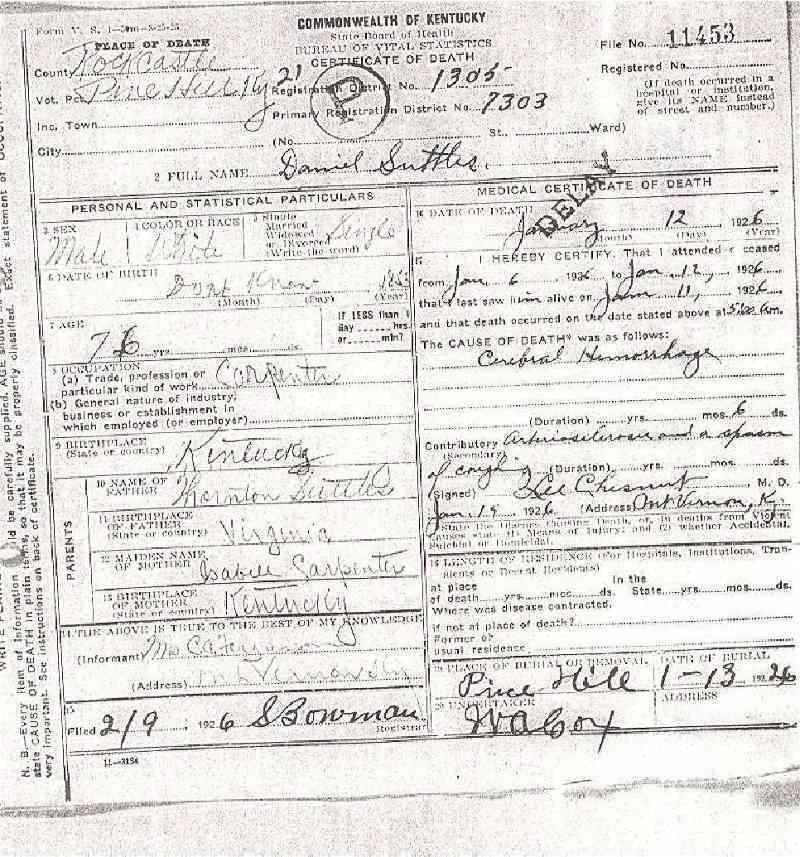 Form V. S. 1-
COMMONWEALTH OF KENTUCKY
State Board of Health
BUREAU OF VITAL STATISTICS
CERTIFICATE OF DEATH
File No. 11453
Registered No.
(If death occurred in a hospital or institution, give its NAME instead of street and number.)
PLACE OF DEATH
County Rockcastle
Vot. Pct. Pine Hill Ky
21 Registration District No. 1305
Primary Registration District No. 7303
P
Inc. Town
City
(No. St. Ward)
2 FULL NAME Daniel Suttles.
DELAY
PERSONAL AND STATISTICAL PARTICULARS
3 SEX Male
4 COLOR OR RACE White
5 Single Married Widowed or Divorced (Write the word) Single
6 DATE OF BIRTH Dont Know
(Month) (Day) (Year)
7 AGE
76 yrs. mos. ds.
If LESS than 1 day hrs. or min?
8 OCCUPATION
(a) Trade, profession or particular kind of work Carpenter
(b) General nature of industry, business or establishment in which employed (or employer)
9 BIRTHPLACE (State or country) Kentucky
PARENTS
10 NAME OF FATHER Thornton Suttles
11 BIRTHPLACE OF FATHER (State or country) Virginia
12 MAIDEN NAME OF MOTHER Isabell Carpenter
13 BIRTHPLACE OF MOTHER (State or country) Kentucky
14 THE ABOVE IS TRUE TO THE BEST OF MY KNOWLEDGE
(Informant)
(Address) Mt Vernon Ky
15
Filed 2/9 1926 S Bowman
Registrar
11-3184
MEDICAL CERTIFICATE OF DEATH
16 DATE OF DEATH
January 12 1926
(Month) (Day) (Year)
17 I HEREBY CERTIFY, That I attended deceased
from Jan 6 1926 to Jan 12, 1926
that I last saw him alive on Jan 11, 1926
and that death occurred on the date stated above at
The CAUSE OF DEATH* was as follows:
Cerebral Hemorrhage
(Duration) yrs. mos. 6 ds.
Contributory (Secondary) Arteriosclerosis and a spasm
of coughing (Duration) yrs. mos. ds.
(Signed) Lee Chesnut M. D.
Jan. 15 1926 (Address) Mt Vernon, K.
*State the Disease Causing Death, or, in deaths from Violent Causes state (1) Means of Injury; and (2) whether Accidental, Suicidal or Homicidal.
18 LENGTH OF RESIDENCE (For Hospitals, Institutions, Transients or Recent Residents)
At place of death yrs. mos. ds. In the State yrs. mos. ds.
Where was disease contracted,
if not at place of death?
Former or usual residence
19 PLACE OF BURIAL OR REMOVAL Pine Hill
DATE OF BURIAL 1-13 1926
20 UNDERTAKER W A Cox
ADDRESS